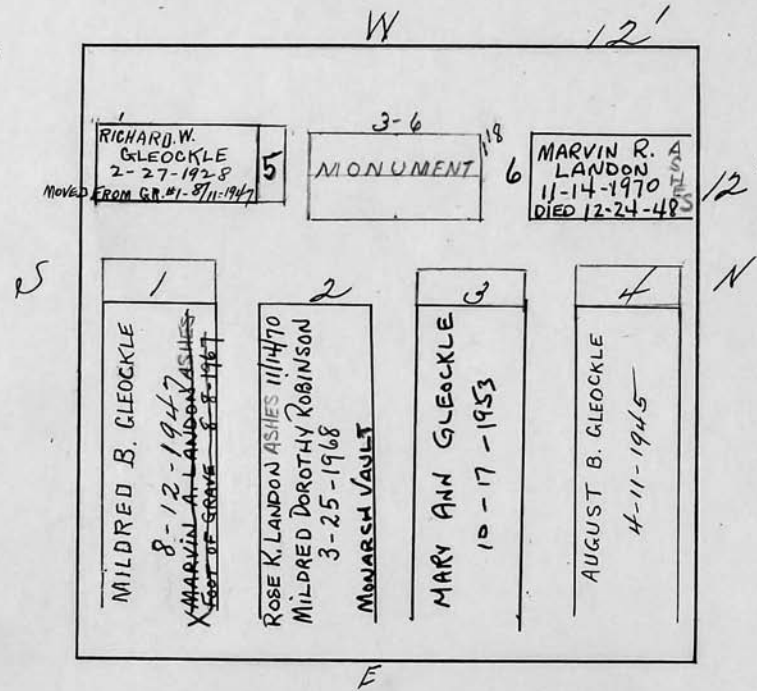 W
12'
RICHARD. W.
GLEOCKLE
2-27-1928
MOVED FROM GR.#1-8/11-1947
5
3-6
18
MONUMENT
6
MARVIN R.
LANDON
11-14-1970
DIED 12-24-48
ASHES
12
S
N
1
MILDRED B. GLEOCKLE
8-12-1947
X MARVIN A. LANDON ASHES
X FOOT OF GRAVE 8-8-1967
2
ROSE K. LANDON ASHES 11/14/70
MILDRED DOROTHY ROBINSON
3-25-1968
MONARCH VAULT
3
MARY ANN GLEOCKLE
10-17-1953
4
AUGUST B. GLEOCKLE
4-11-1945
E